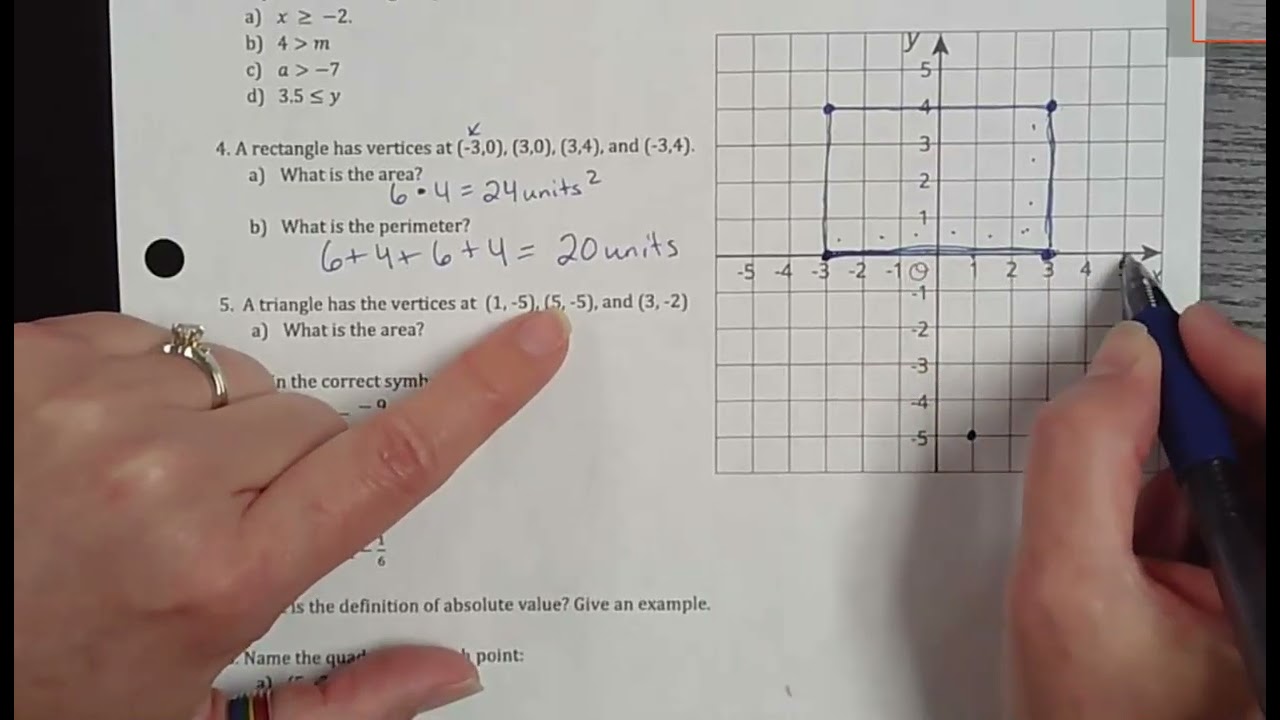 a) x ≥ −2.
b) 4 > m
c) a > −7
d) 3.5 ≤ y
4. A rectangle has vertices at (-3,0), (3,0), (3,4), and (-3,4).
a) What is the area?
6 • 4 = 24 units²
b) What is the perimeter?
6+4+6+4 = 20 units
5. A triangle has the vertices at (1, -5), (5, -5), and (3, -2)
a) What is the area?
n the correct symb
−9
1
6
is the definition of absolute value? Give an example.
Name the point:
a)
y
5
4
3
2
1
-5 -4 -3 -2 -1 O 1 2 3 4 x
-1
-2
-3
-4
-5